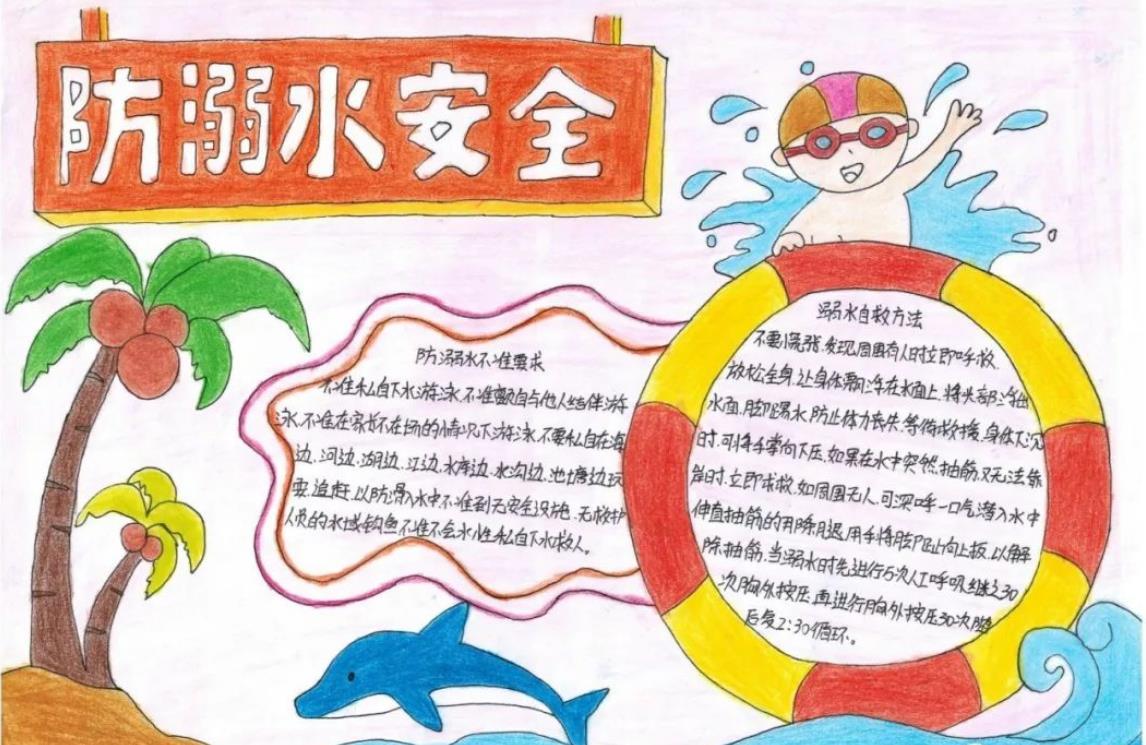 防溺水安全
防溺水不准要求
不准私自下水游泳,不准擅自与他人结伴游
泳,不准在家长不在场的情况下游泳,不要私自在海
边、河边、湖边、江边、水库边、水沟边、池塘边玩
耍、追赶,以防滑入水中不准到无安全设施、无救护
人员的水域钓鱼不准不会水性私自下水救人。
溺水自救方法
不要慌张,发现周围有人时立即呼救,
放松全身,让身体飘浮在水面上,将头部浮出
水面,脚踢水,防止体力丧失,等待救援,身体下沉
时,可将手掌向下压,如果在水中突然抽筋,又无法靠
岸时,立即求救,如周围无人,可深呼一口气潜入水中
伸直抽筋的那条腿,用手将脚趾向上扳,以解
除抽筋,当溺水时先进行5次人工呼吸继之30
次胸外按压,再进行胸外按压30次
后复2:30循环。